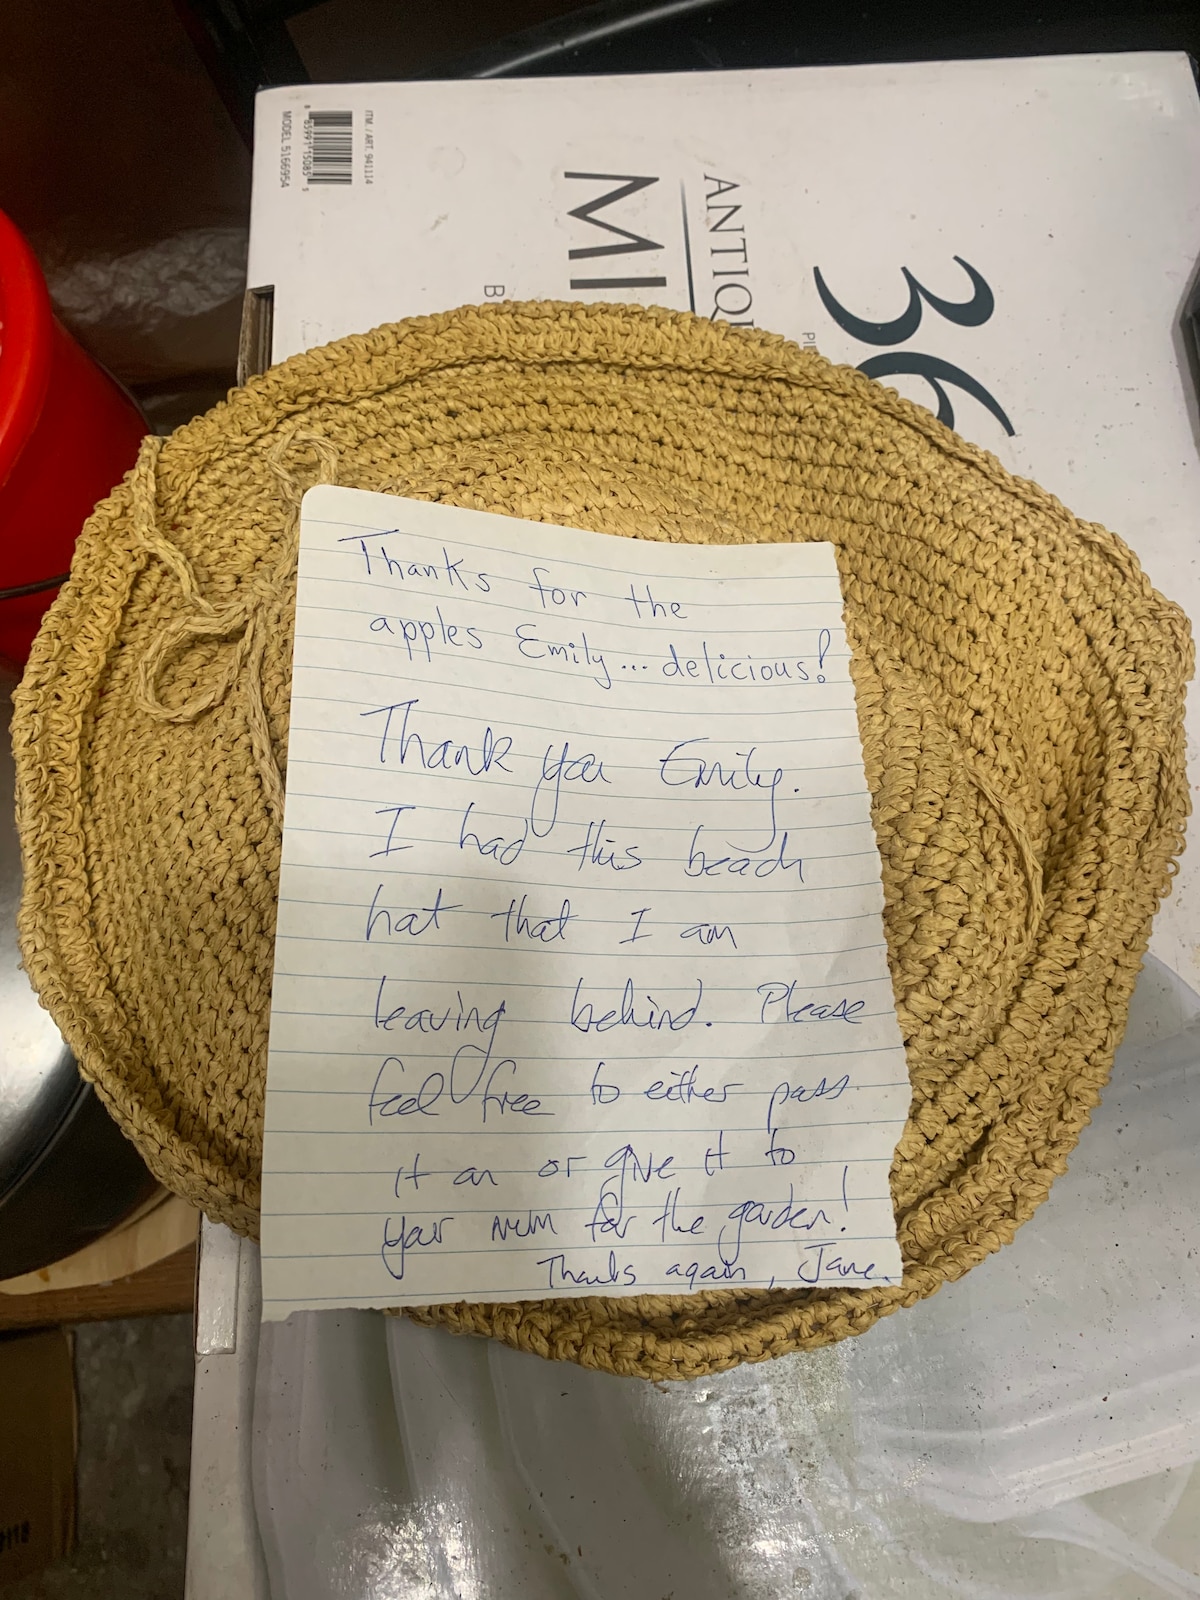 ITM. / ART. 941114
8 63991 15085 5
MODEL 516695A
36
ANTIQ
MI
B
Thanks for the
apples Emily... delicious!
Thank you Emily.
I had this beach
hat that I am
leaving behind. Please
feel free to either pass
it on or give it to
your mum for the garden!
Thanks again, Jane.